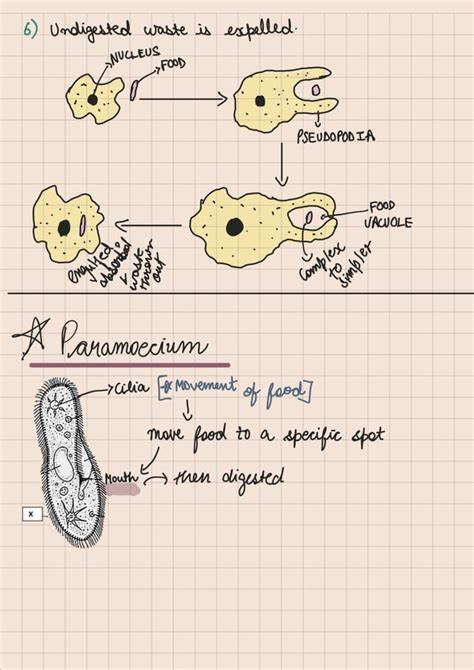 6) Undigested waste is expelled.
NUCLEUS
FOOD
PSEUDOPODIA
FOOD
VACUOLE
complex
to
simpler
engulfed &
absorbed
waste
thrown
out
Paramoecium
Cilia [Movement of food]
move food to a specific spot
Mouth → then digested
x